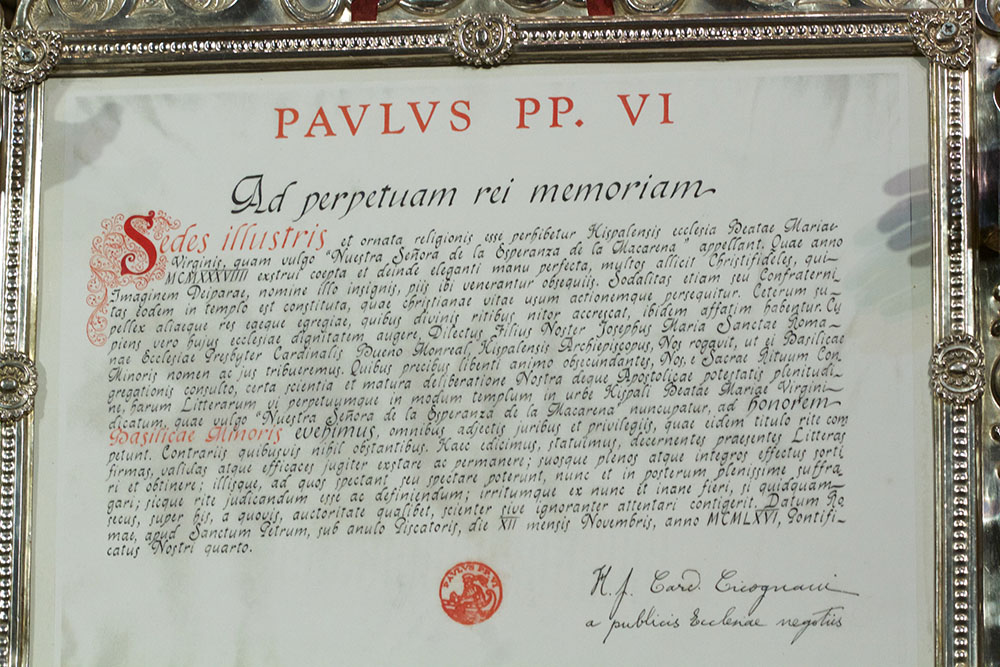 PAVLVS PP. VI
Ad perpetuam rei memoriam
Sedes illustris et ornata religionis esse perhibetur Hispalensis ecclesia Beatae Mariae
Virginis, quam vulgo "Nuestra Señora de la Esperanza de la Macarena" appellant. Quae anno
MCMXXXXVIIII exstrui coepta et deinde eleganti manu perfecta, multos allicit Christifideles, qui
Imaginem Deiparae, nomine illo insignis, piis ibi venerantur obsequiis. Sodalitas etiam seu Confraterni-
tas eodem in templo est constituta, quae christianae vitae usum actionemque persequitur. Ceterum su-
pellex aliaeque res egregiae, quibus divinis ritibus nitor accrescat, ibidem affatim habentur. Cu
piens vero hujus ecclesiae dignitatem augere, Dilectus Filius Noster Josephus Maria Sanctae Roma-
nae Ecclesiae Presbyter Cardinalis Bueno Monreal Hispalensis Archiepiscopus, Nos rogavit, ut ei Basilicae
Minoris nomen ac jus tribueremus. Quibus precibus libenti animo obsecundantes, Nos, e Sacrae Rituum Con
gregationis consulto, certa scientia et matura deliberatione Nostra deque Apostolicae potestatis plenitudi-
ne, harum Litterarum vi perpetuumque in modum templum in urbe Hispali Beatae Mariae Virgini
dicatum, quae vulgo "Nuestra Señora de la Esperanza de la Macarena" nuncupatur, ad honorem
Basilicae Minoris evehimus, omnibus adjectis juribus et privilegiis, quae eidem titulo rite com
petunt. Contrariis quibusvis nihil obstantibus. Haec edicimus, statuimus, decernentes praesentes Litteras
firmas, validas atque efficaces jugiter exstare ac permanere; suosque plenos atque integros effectus sorti
ri et obtinere; illisque, ad quos spectant seu spectare poterunt, nunc et in posterum plenissime suffra
gari; sicque rite judicandum esse ac definiendum; irritumque ex nunc et inane fieri, si quidquam
secus, super his, a quovis, auctoritate qualibet, scienter sive ignoranter attentari contigerit. Datum Ro
mae, apud Sanctum Petrum, sub anulo Piscatoris, die XII mensis Novembris, anno MCMLXVI, Pontifi-
catus Nostri quarto.
PAVLVS PP. VI
H. J. Card. Cicognani
a publicis Ecclesiae negotiis